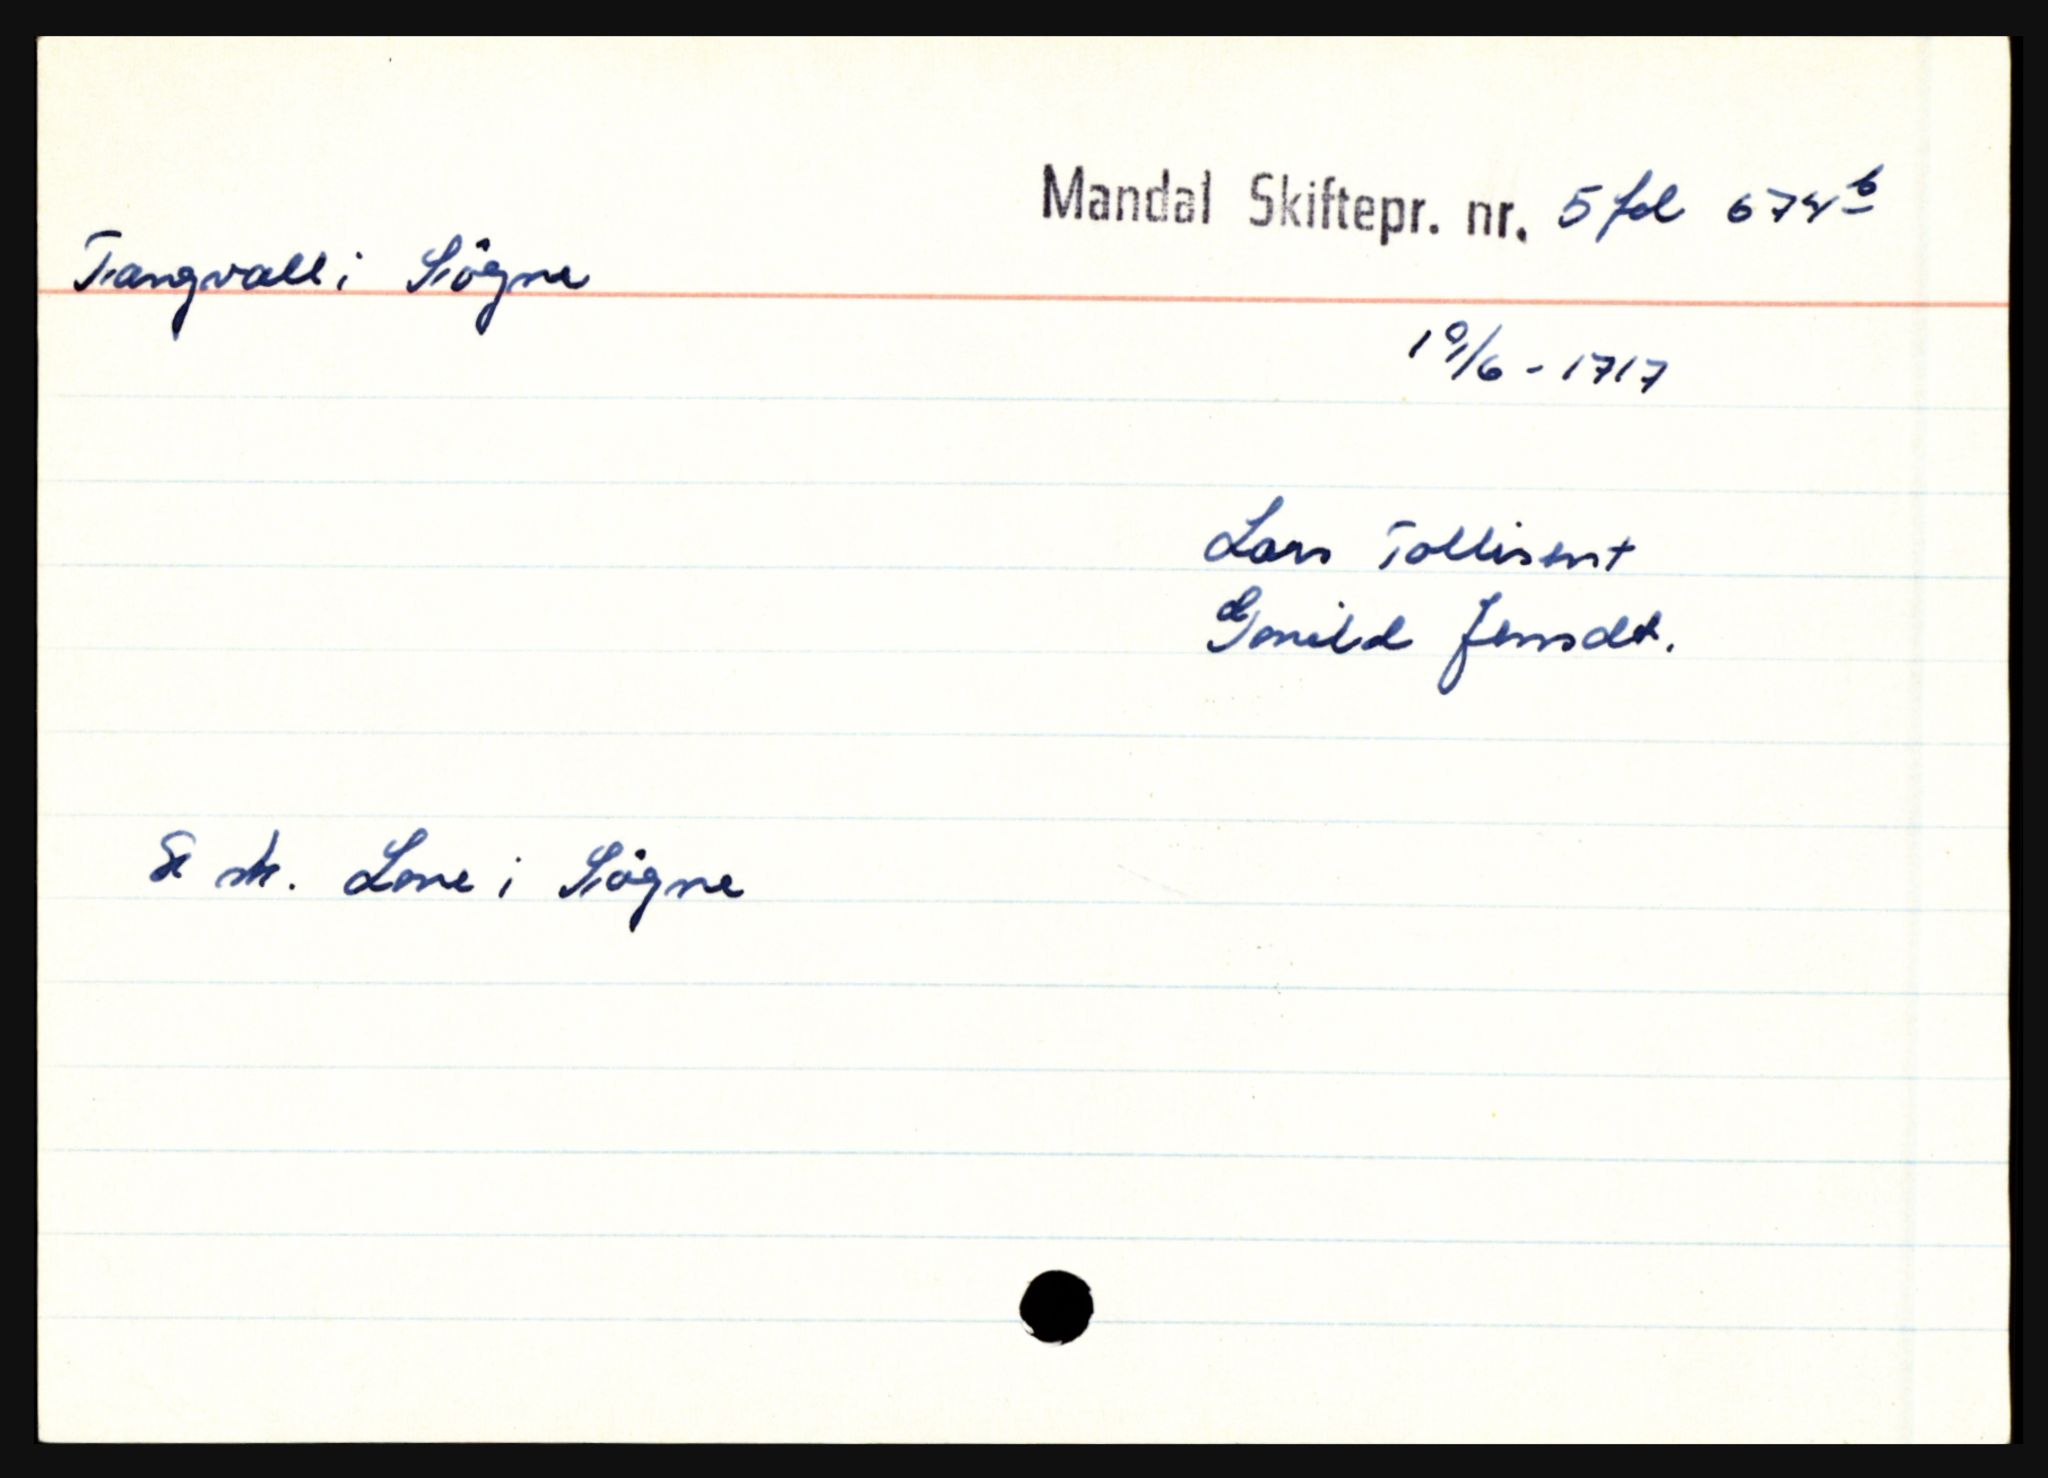 Mandal Skiftepr. nr. 5 fol 674b
Tangvall i Sögne
19/6 - 1717
Lars Tollisen+
Gonild Jensdt.
Se sk. Lone i Sögne